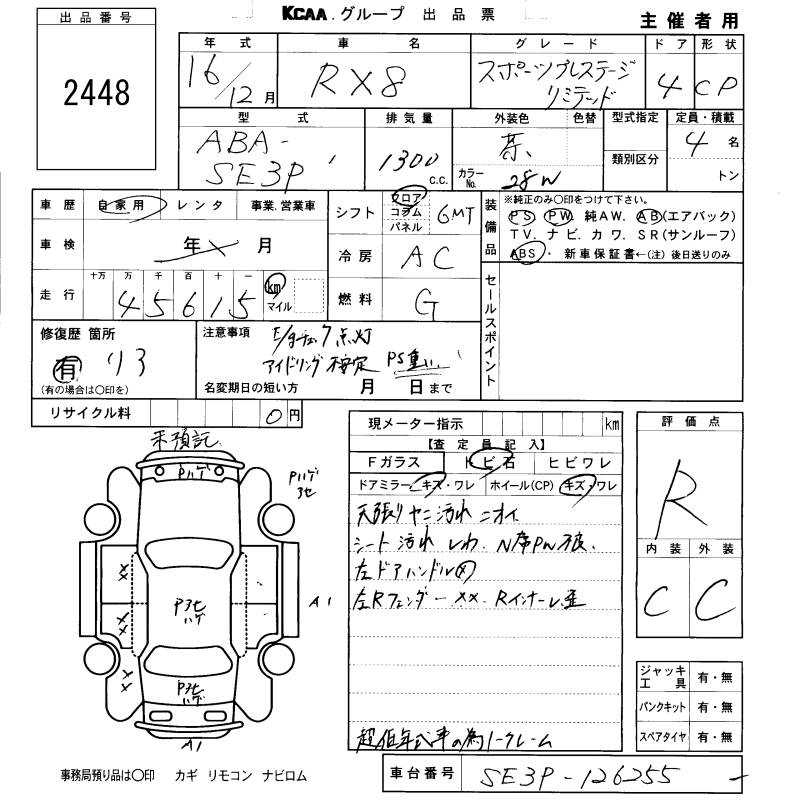 KCAA.グループ 出品票
主催者用
出品番号
2448
年式 車名 グレード ドア 形状
16/12月 RX8 スポーツプレステージ リミテッド 4 CP
型式 排気量 外装色 色替 型式指定 定員・積載
ABA-SE3P 1300 c.c. 茶 カラーNo. 28W 類別区分 4名 トン
車歴 自家用 レンタ 事業.営業車
シフト フロア コラム パネル 6MT
装備品 ※純正のみ〇印をつけて下さい。
PS PW 純AW. AB(エアバック)
TV. ナビ. カワ. SR(サンルーフ)
ABS ・新車保証書←(注) 後日送りのみ
車検 年 月
冷房 AC
走行 十万 万 千 百 十 一
45615 km マイル
燃料 G
セールスポイント
修復歴 箇所
有 リア
(有の場合は〇印を)
注意事項 E/gチェック点灯
アイドリング不安定 PS重い
名変期日の短い方 月 日まで
リサイクル料 0円
未預託
現メーター指示 km
【査定員記入】
Fガラス トビ石 ヒビワレ
ドアミラー キズ・ワレ ホイール(CP) キズ・ワレ
天張りヤニ汚れ ニオイ
シート汚れ シワ. N席PW
左ドアハンドル
左Rフェンダー XX. Rインナーし歪
超低年式車の為ノークレーム
評価点
R
内装 外装
C C
ジャッキ工具 有・無
パンクキット 有・無
スペアタイヤ 有・無
Pハゲ
Pハゲ
XX
XX
XX
Pヨセ ハゲ
Pヨセ ハゲ
A1
A1
事務局預り品は〇印 カギ リモコン ナビロム
車台番号 SE3P-126255